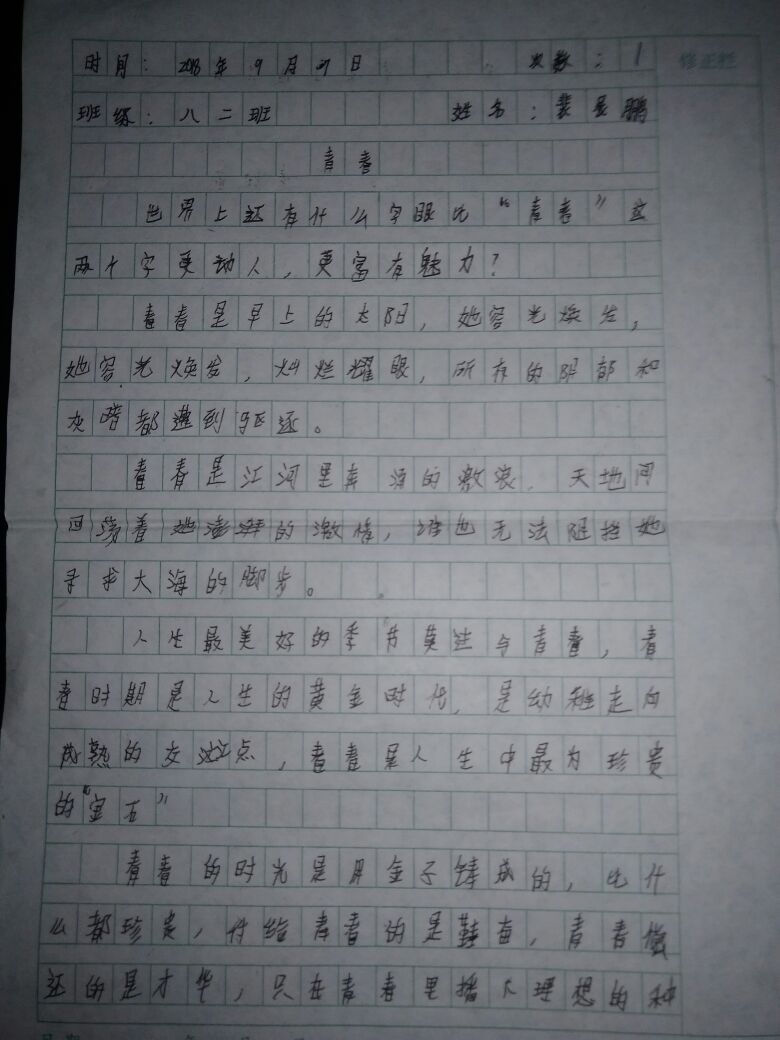 时间：2018年9月27日 次数：1 修正栏
班级：八二班 姓名：裴显鹏
青春
世界上还有什么字眼比“青春”这
两个字更动人，更富有魅力？
青春是早上的太阳，她容光焕发，
她容光焕发，灿烂耀眼，所有的阴郁和
灰暗都遭到驱逐。
青春是江河里奔涌的激浪，天地间
回荡着她澎湃的激情，谁也无法阻挡她
寻求大海的脚步。
人生最美好的季节莫过与青春，青
春时期是人生的黄金时代，是幼稚走向
成熟的交汇点，青春是人生中最为珍贵
的“宝石”
青春的时光是用金子铸成的，比什
么都珍贵，付给青春的是耕耘，青春偿
还的是才华，只在青春里播下理想的种